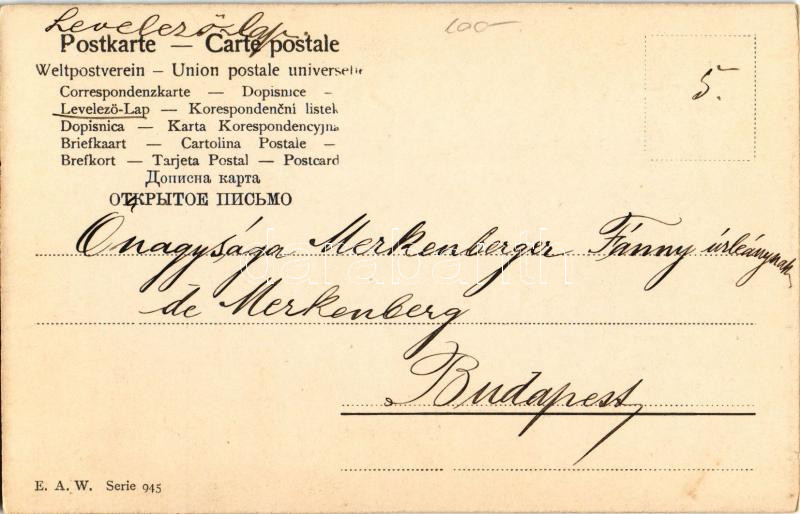 Levelező lap.
100-
Postkarte — Carte postale
Weltpostverein – Union postale universelle
Correspondenzkarte — Dopisnice –
Levelezö-Lap — Korespondenční listek
Dopisnica — Karta Korespondencyjna
Briefkaart — Cartolina Postale –
Brefkort — Tarjeta Postal — Postcard
Дописна карта
ОТКРЫТОЕ ПИСЬМО
5.
Őnagysága Merkenberger Fánny úrleánynak
de Merkenberg
Budapest
E. A. W. Serie 945
darabanth